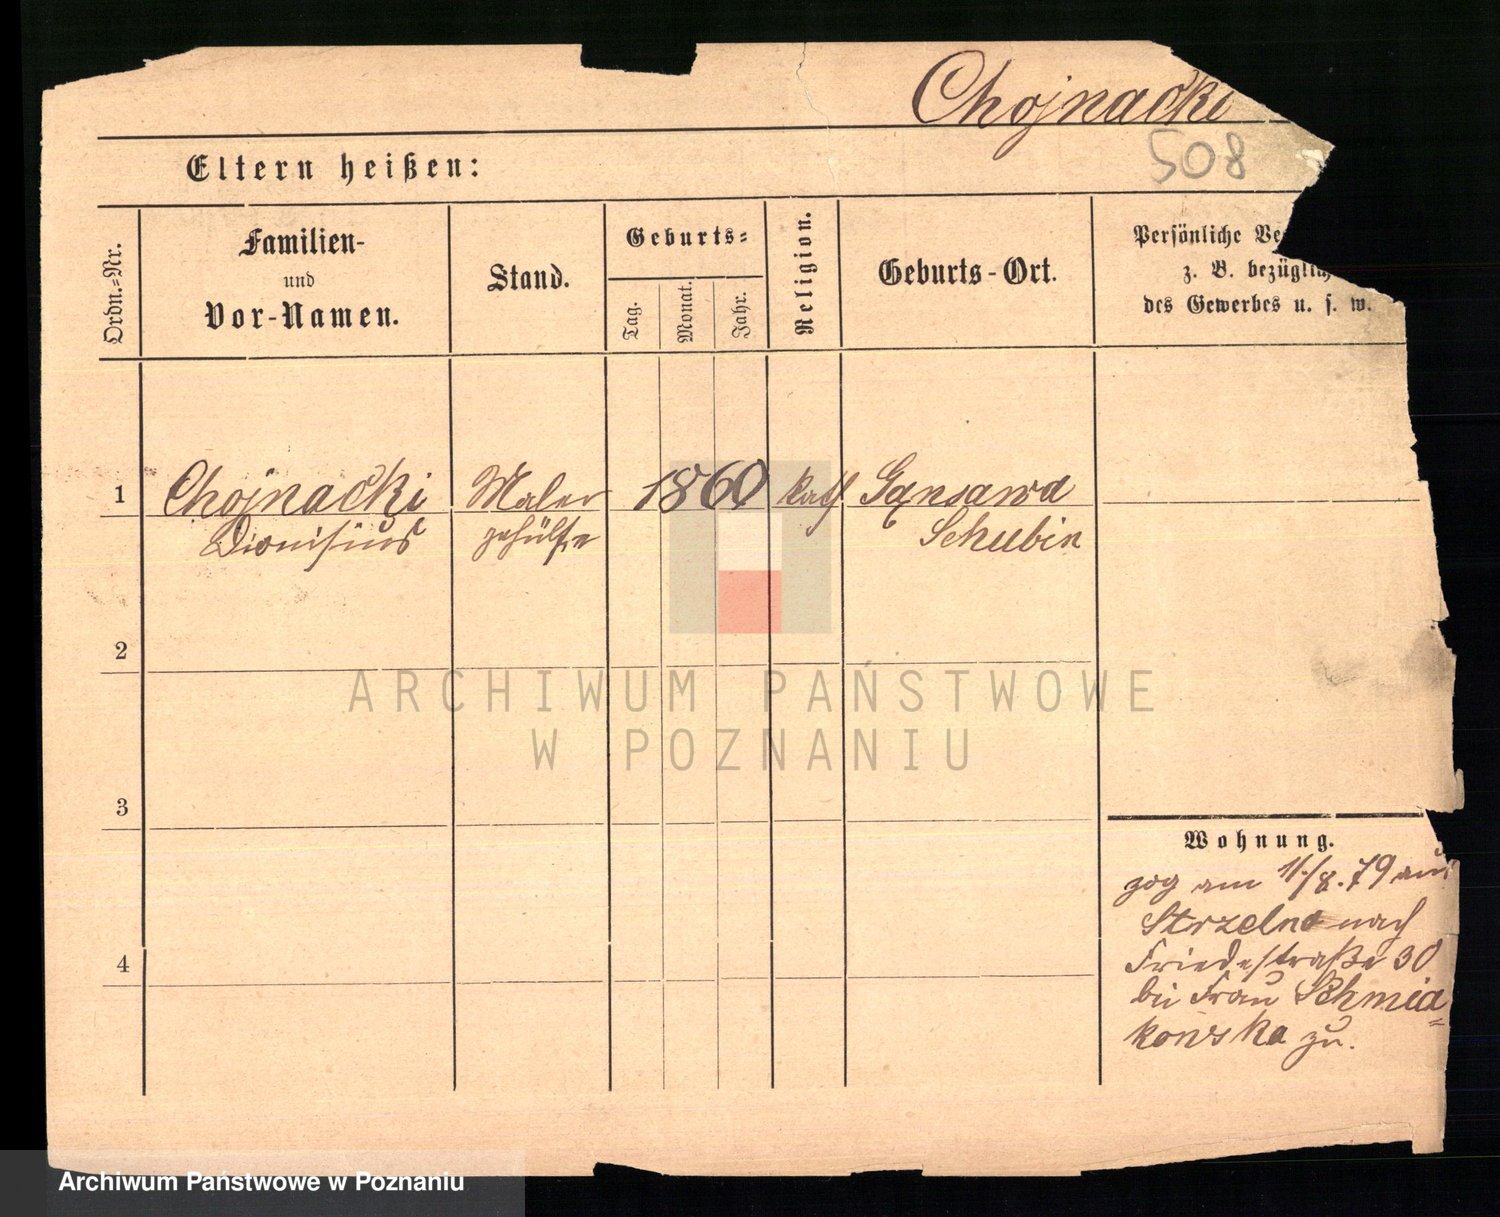 Chojnacki
508
Eltern heißen:
Ordn.-Nr.
Familien-
und
Vor-Namen.
Stand.
Geburts-
Tag.
Monat.
Jahr.
Religion.
Geburts-Ort.
Persönliche Ve
z. B. bezüglich
des Gewerbes u. s. w.
1 Chojnacki Maler 1860 kath Gansawa
Dionisius gehülfe Schubin
2
3
4
Wohnung.
zog am 11/8. 79 aus
Strzelno nach
Friedestraße 30
bei Frau Schmid=
kowska zu.
ARCHIWUM PAŃSTWOWE
W POZNANIU
Archiwum Państwowe w Poznaniu